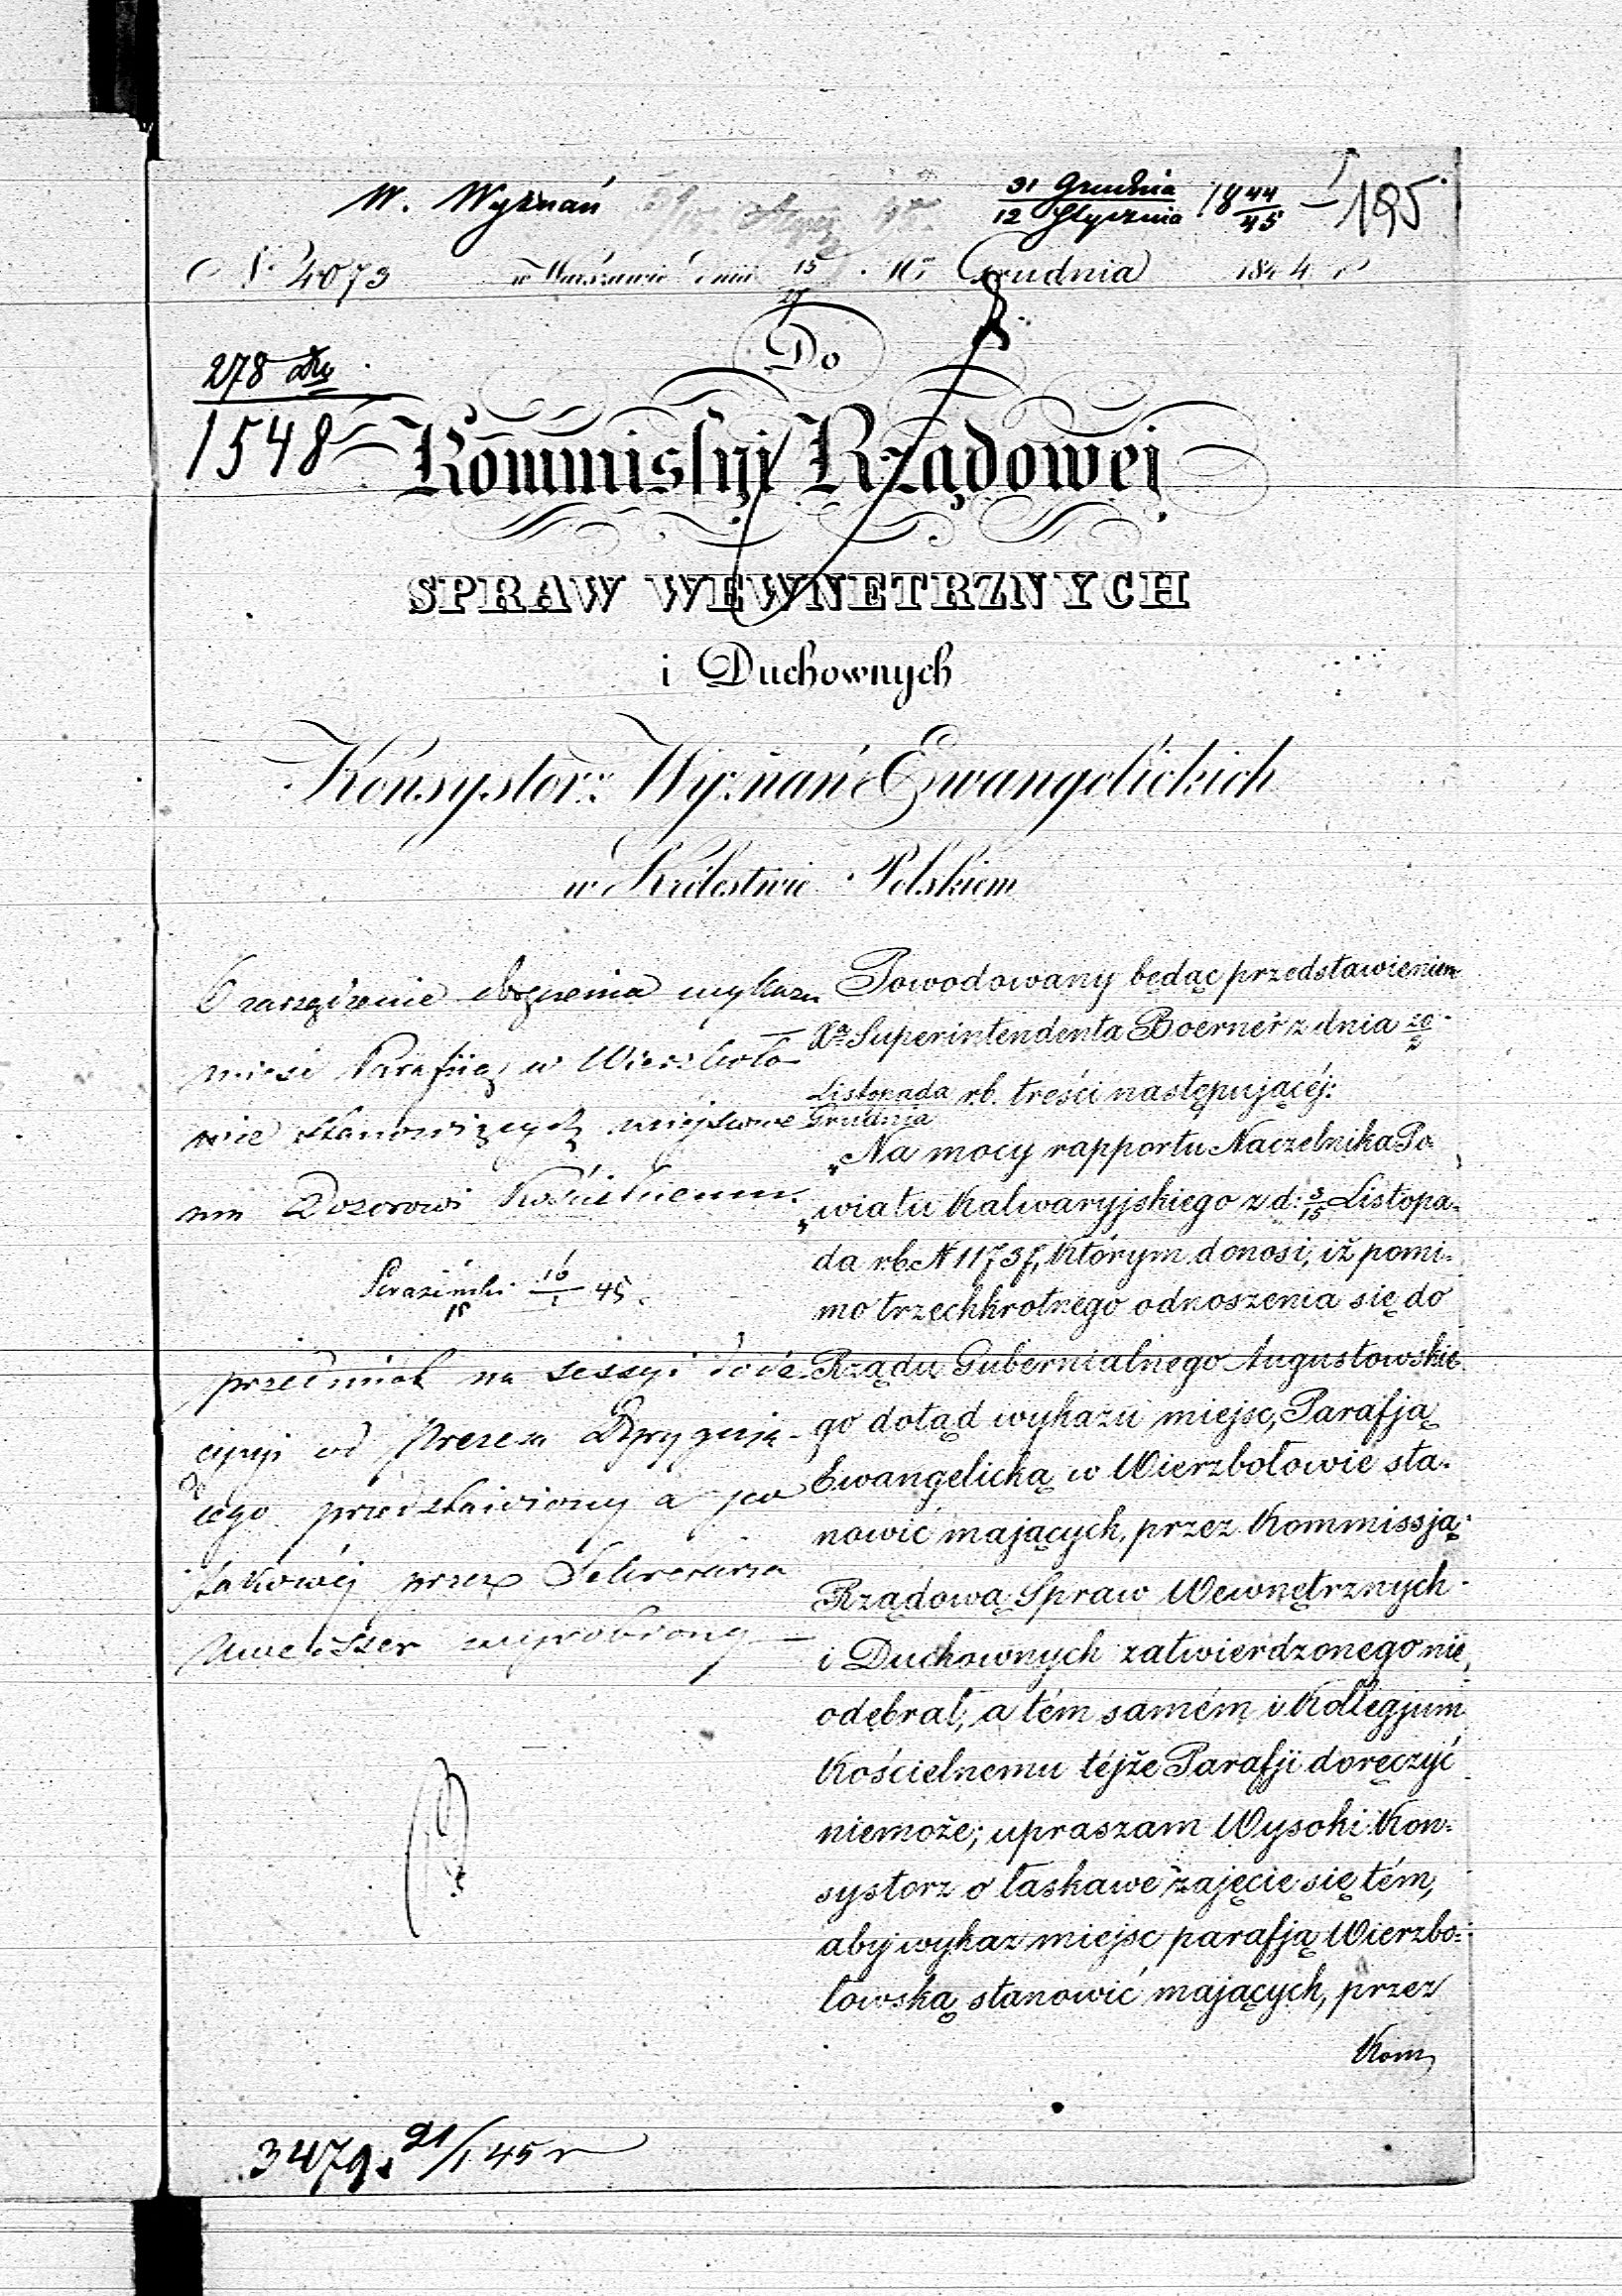 W. Wyznań
31 Grudnia 1844 185
12 Stycznia 45
N. 4073 w Warszawie dnia 15 Grudnia 1844 r
27
Do
278
1548
Kommissyi Rządowej
SPRAW WEWNETRZNYCH
i Duchownych
Konsystorz Wyznań Ewangelickich
w Królestwie Polskiem
wykazu
miejsc Parafiię w Wierzboło-
wie stanowiących miejscowe
mu Dozorowi Kościelnemu.
16 45.
przedmiot na sessyi
od Prezesa
cego przedstawiony a
przez Sekretarza
Powodowany będąc przedstawieniem
Xa Superintendenta Boerner z dnia 20
Listopada r.b. treści następującéj:
Grudnia
„Na mocy rapportu Naczelnika Po
„wiatu Kalwaryjskiego z d: 3/15 Listopa-
da r.b. N 11737, którym donosi, iż pomi-
mo trzechkrotnego odnoszenia się do
Rządu Gubernialnego Augustowskie-
go dotąd wykazu miejsc, Parafją
Ewangelicką w Wierzbołowie sta-
nowić mających, przez Kommissją
Rządową Spraw Wewnętrznych
i Duchownych zatwierdzonego nie
odebrał, a tém samém i Kollegjum
Kościelnemu téjże Parafji doręczyć
niemoże; upraszam Wysoki Kon-
systorz o łaskawe zajęcie się tém,
aby wykaz miejsc parafją Wierzbo-
łowską stanowić mających, przez
Kom
3479. 21/1 45 r